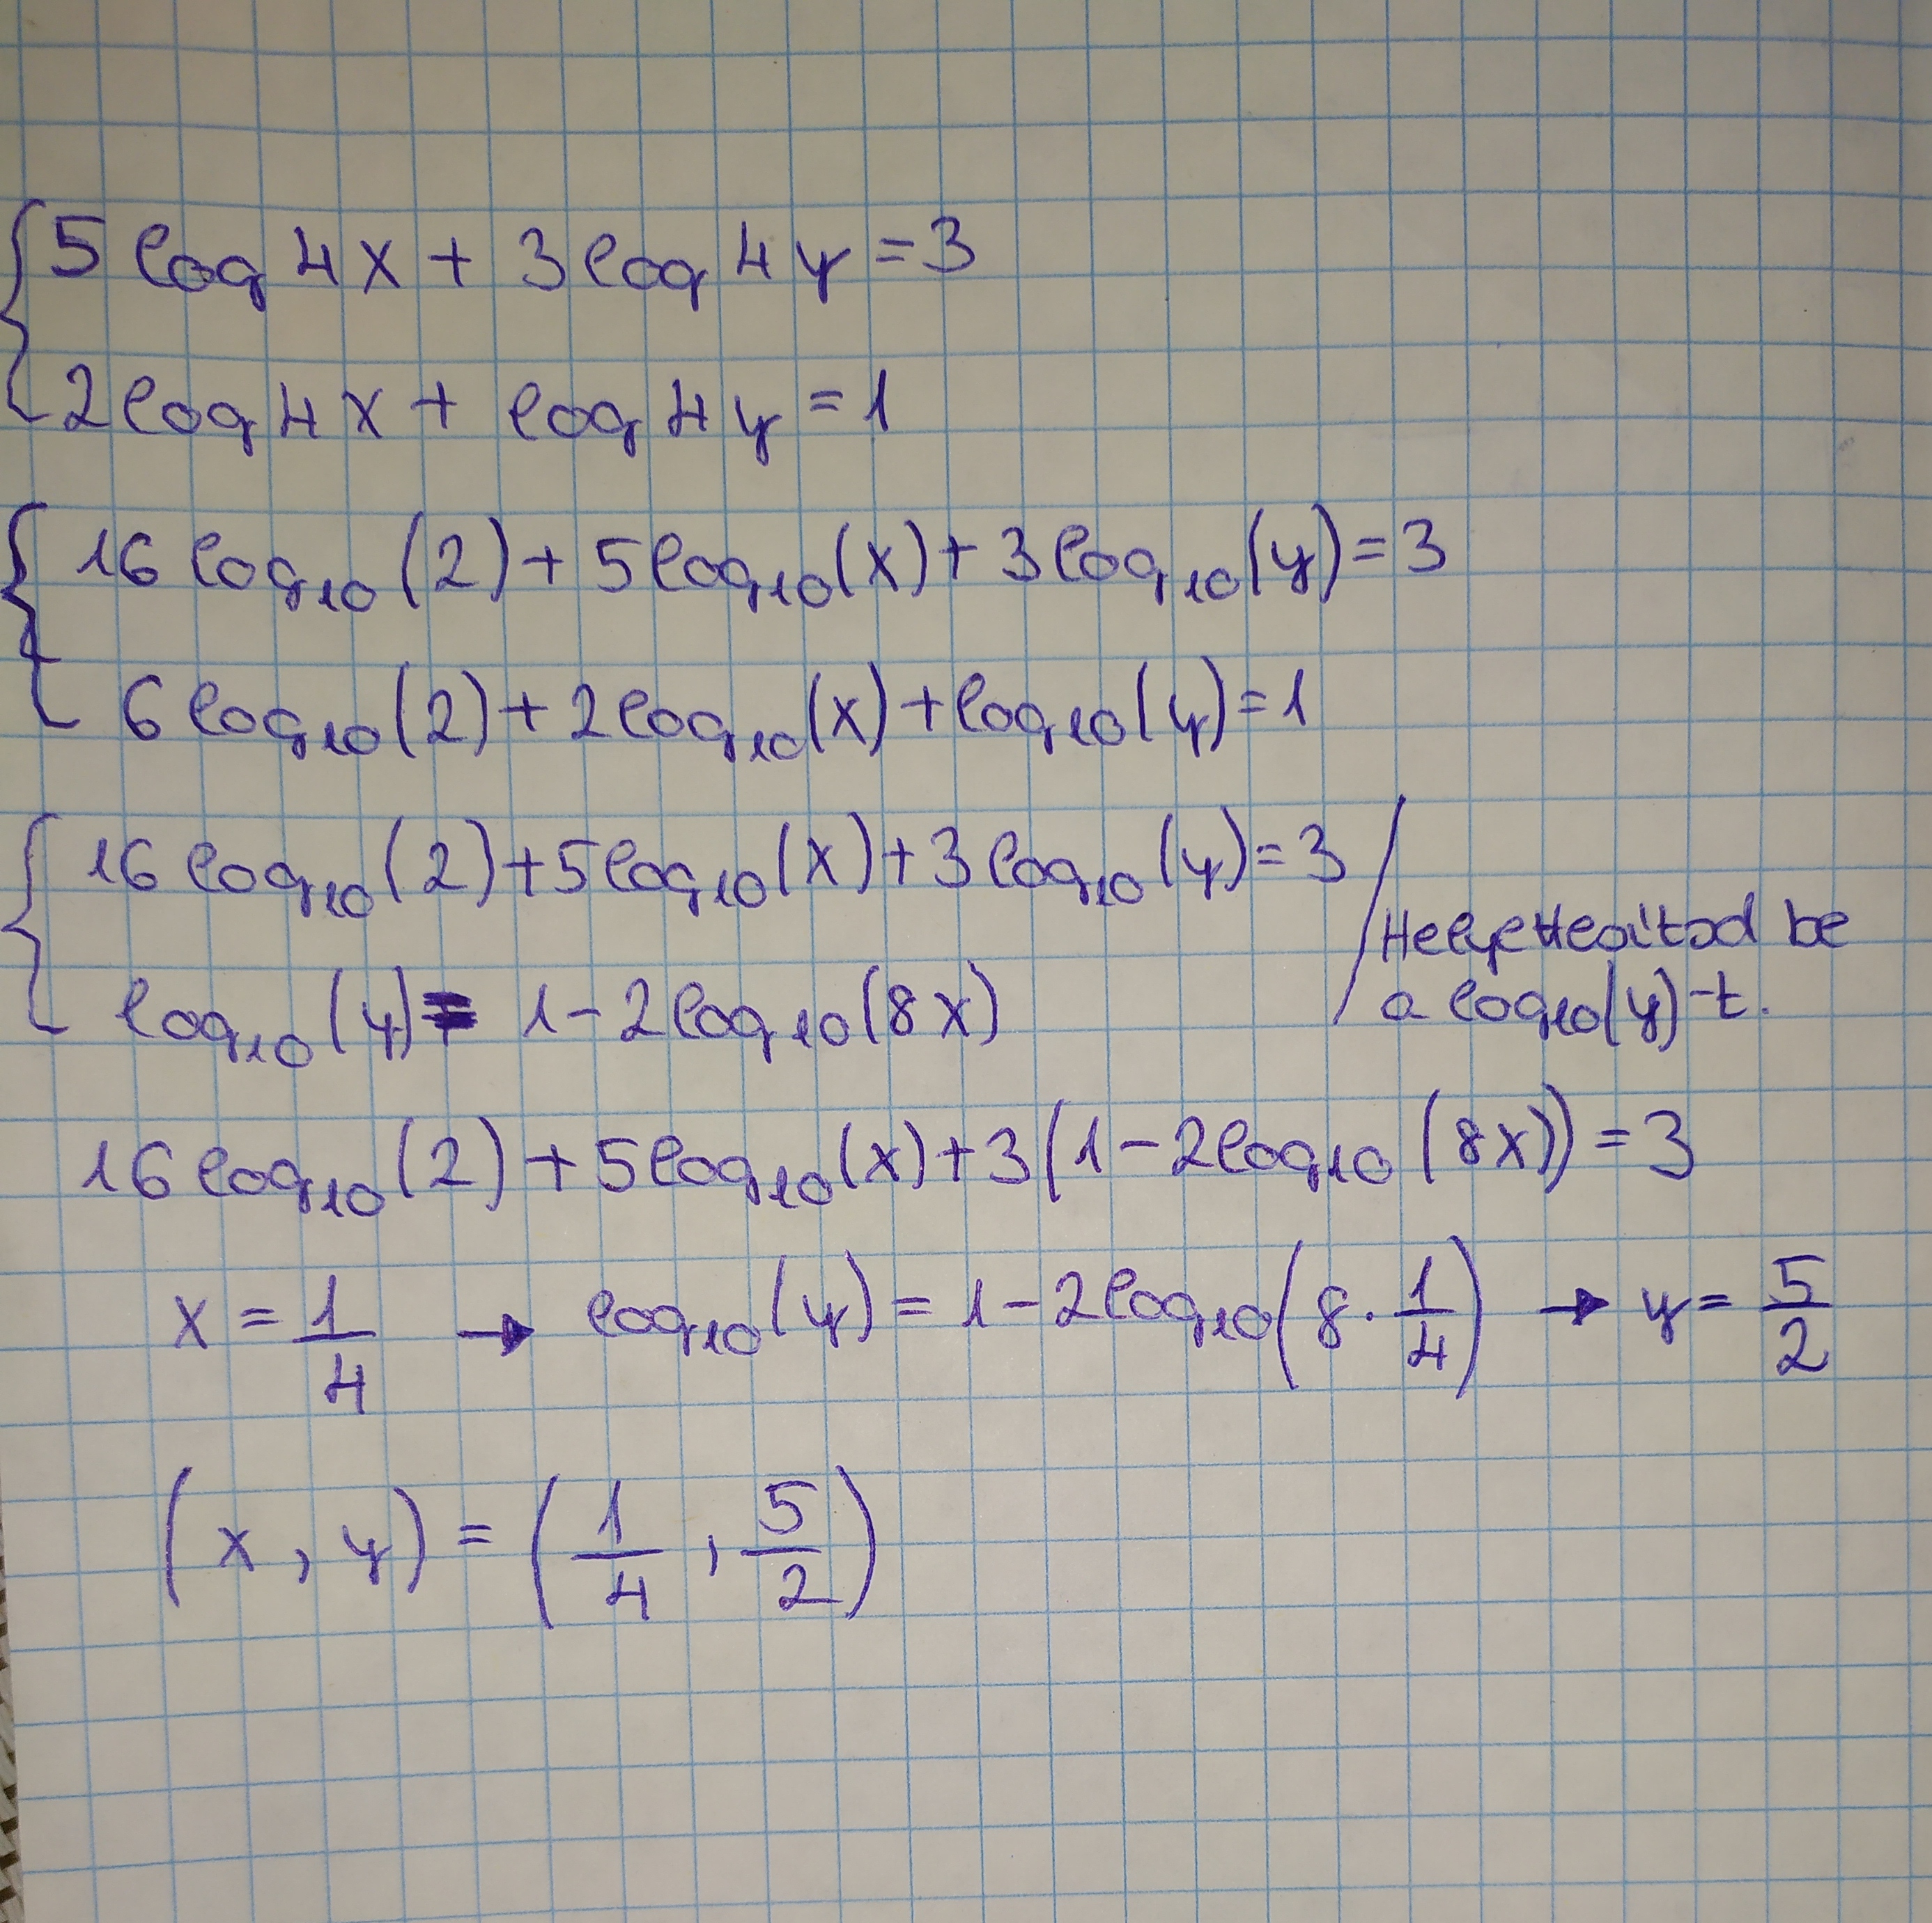 5 log 4x + 3 log 4y = 3
2 log 4x + log 4y = 1
16 log₁₀(2) + 5 log₁₀(x) + 3 log₁₀(y) = 3
6 log₁₀(2) + 2 log₁₀(x) + log₁₀(y) = 1
16 log₁₀(2) + 5 log₁₀(x) + 3 log₁₀(y) = 3 /
log₁₀(y) = 1 - 2 log₁₀(8x)
Helyettesítsd be
a log₁₀(y)-t.
16 log₁₀(2) + 5 log₁₀(x) + 3(1 - 2 log₁₀(8x)) = 3
x = 1/4 → log₁₀(y) = 1 - 2 log₁₀(8 · 1/4) → y = 5/2
(x, y) = (1/4, 5/2)